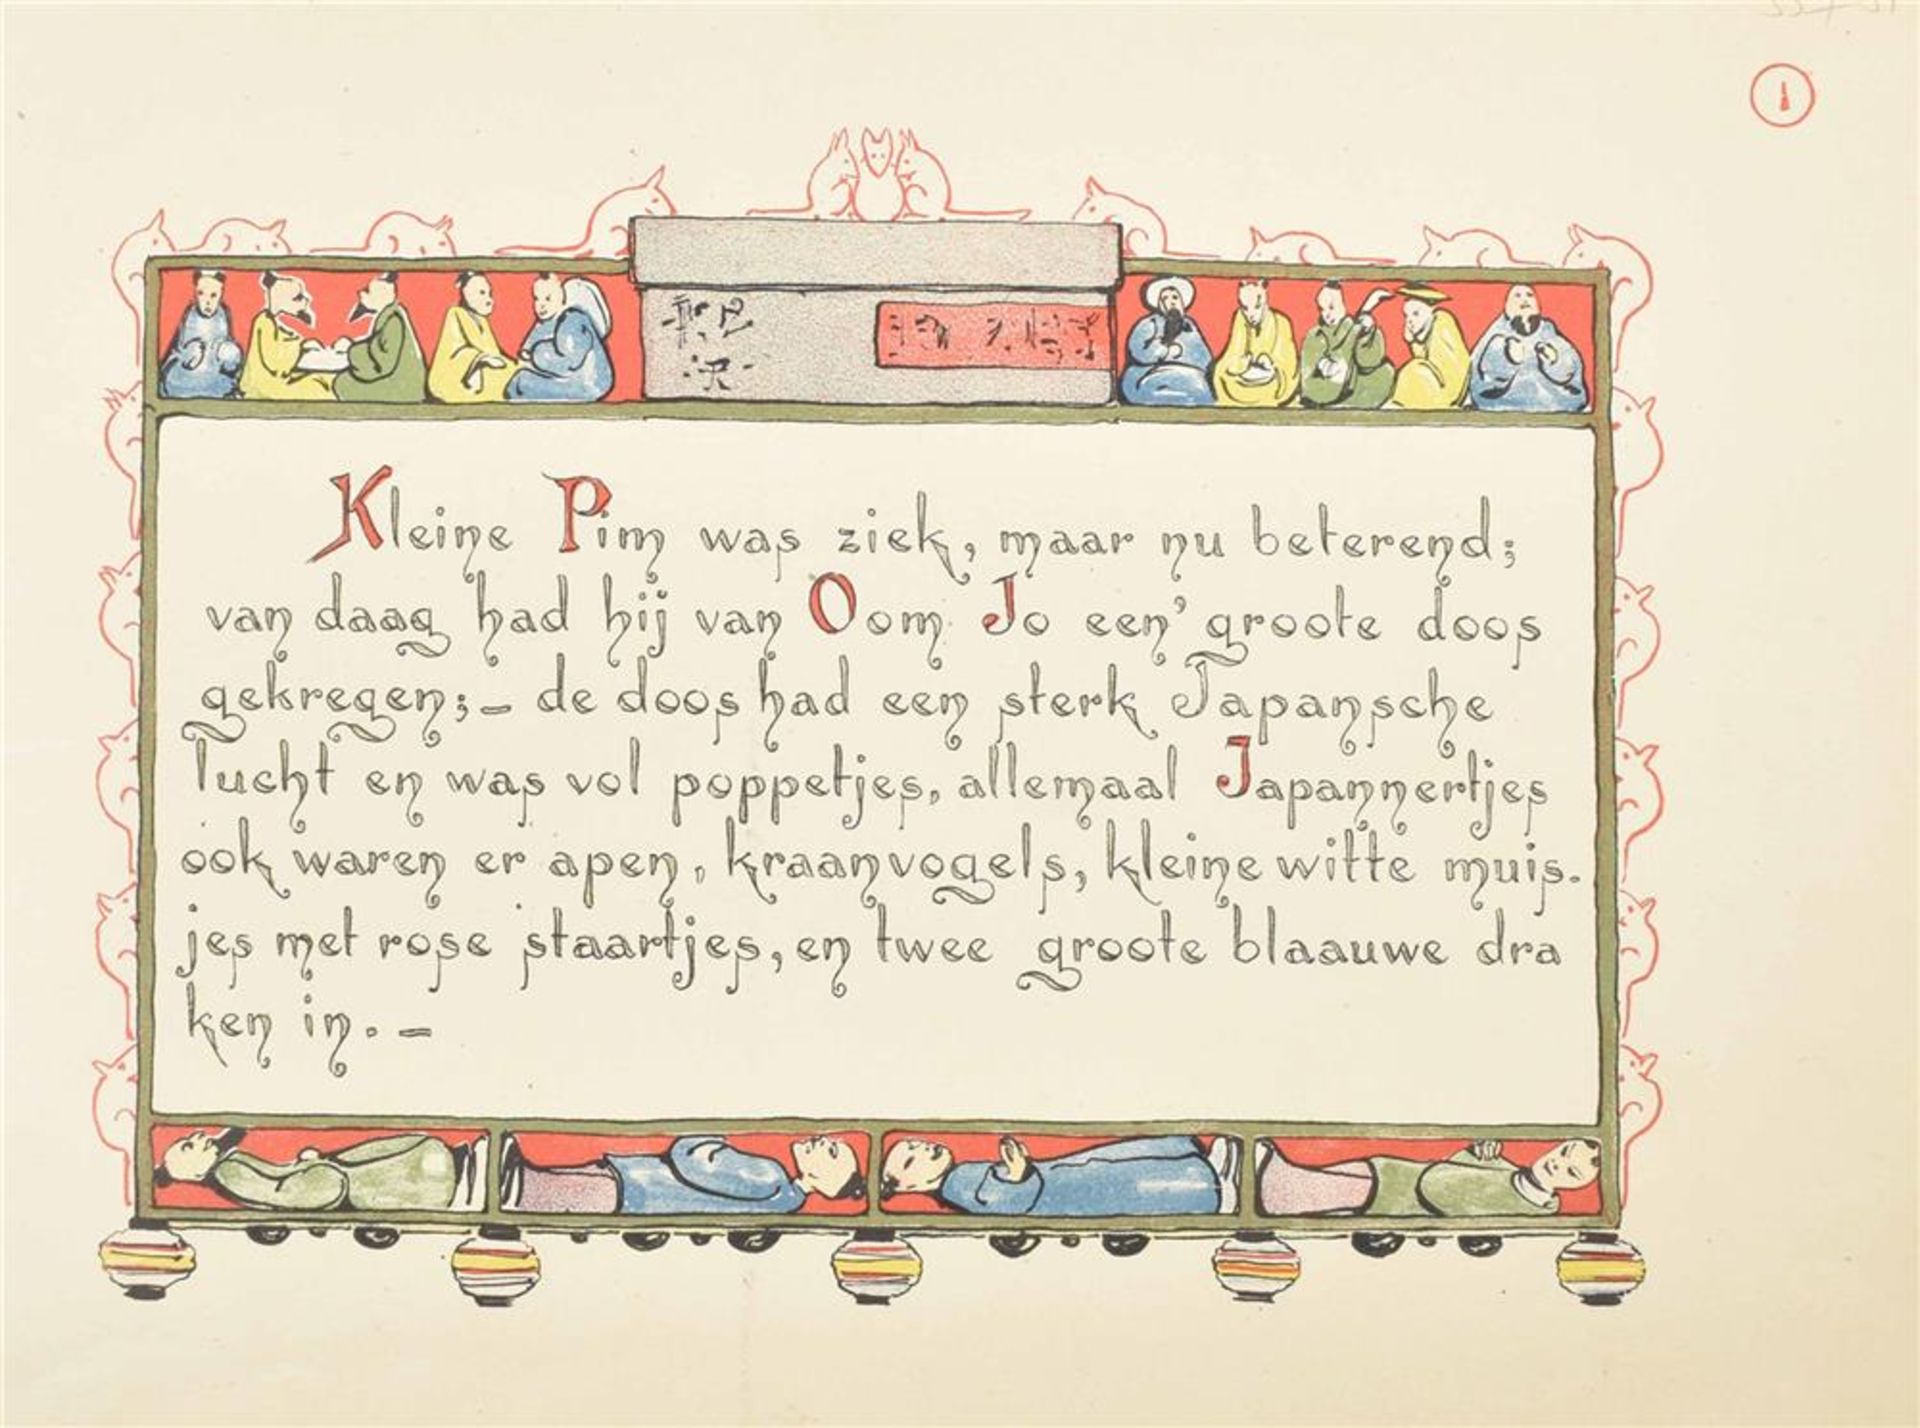 1
Kleine Pim was ziek, maar nu beterend;
van daag had hij van Oom Jo een' groote doos
gekregen;- de doos had een sterk Japansche
lucht en was vol poppetjes, allemaal Japannertjes
ook waren er apen, kraanvogels, kleine witte muis-
jes met rose staartjes, en twee groote blaauwe dra
ken in.-